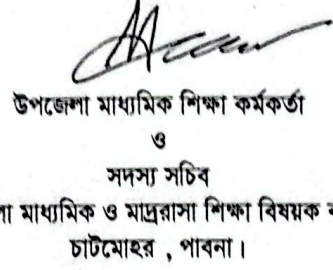 উপজেলা মাধ্যমিক শিক্ষা কর্মকর্তা
ও
সদস্য সচিব
মাধ্যমিক ও মাদ্রাসা শিক্ষা বিষয়ক
চাটমোহর , পাবনা ।